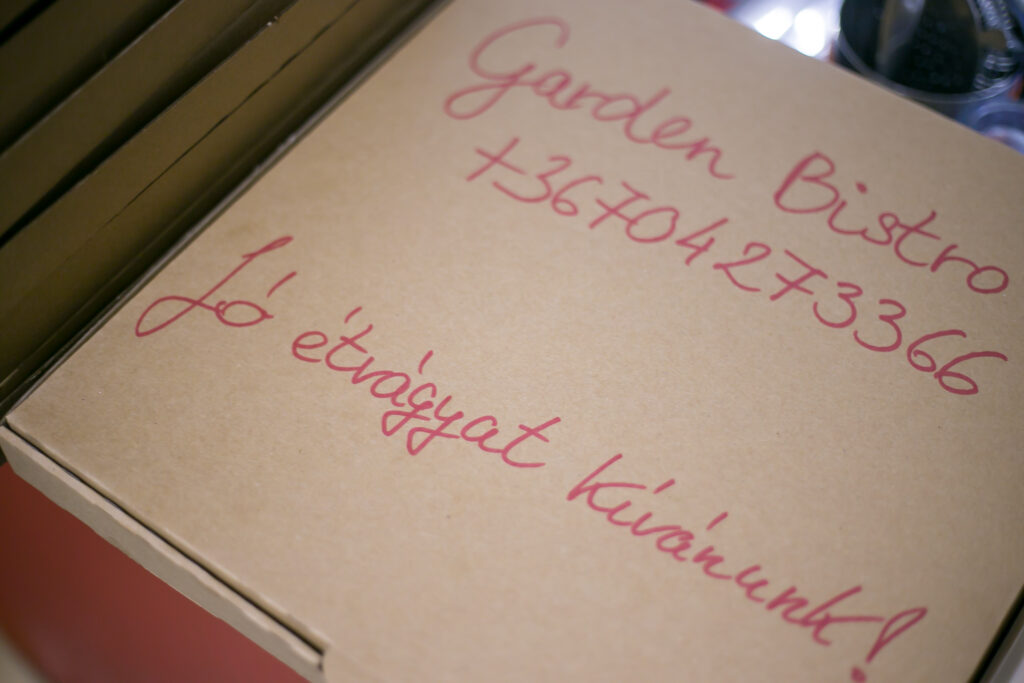 Garden Bistro
+36704273366
Jó étvágyat kívánunk!